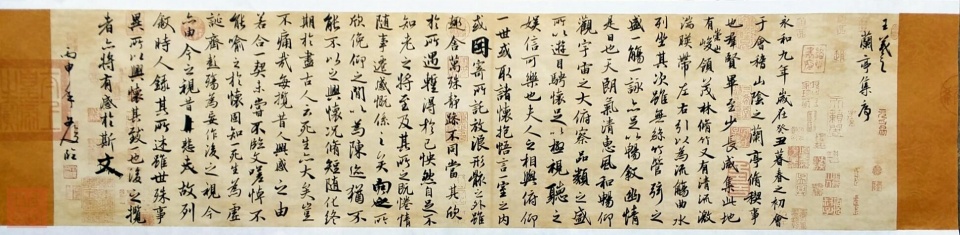 王羲之
蘭亭集序
永和九年歲在癸丑暮春之初會
于會稽山陰之蘭亭脩稧事
也羣賢畢至少長咸集此地
有崇山峻領茂林脩竹又有清流激
湍暎帶左右引以為流觴曲水
列坐其次雖無絲竹管弦之
盛一觴一詠亦足以暢叙幽情
是日也天朗氣清惠風和暢仰
觀宇宙之大俯察品類之盛
所以遊目騁懷足以極視聽之
娛信可樂也夫人之相與俯仰
一世或取諸懷抱悟言一室之內
或因寄所託放浪形骸之外雖
趣舍萬殊靜躁不同當其欣
於所遇蹔得於己怏然自足不
知老之將至及其所之既惓情
隨事遷感慨係之矣向之所
欣俛仰之間以為陳迹猶不
能不以之興懷況脩短隨化終
期於盡古人云死生亦大矣豈
不痛哉每攬昔人興感之由
若合一契未嘗不臨文嗟悼不
能喻之於懷固知一死生為虛
誕齊彭殤為妄作後之視今
亦由今之視昔悲夫故列
叙時人錄其所述雖世殊事
異所以興懷其致一也後之攬
者亦將有感於斯文
丙申年